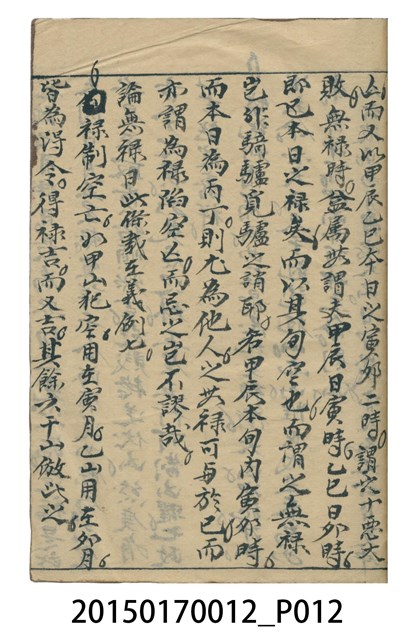 山而又以甲辰乙巳本日之寅夘二時謂之十悪大
敗無祿時盖属無謂夫甲辰日寅時乙巳日夘時
即巳本日之祿矣而以其旬空也而謂之無祿
豈非騎驢覓驢之誚耶若甲辰本旬内寅夘時
而本日為丙丁則尤為他人之無祿可与於巳而
亦謂為祿陷空亡而忌之豈不謬哉
論無祿日此條載在義例七
祿制空亡如甲山犯空用在寅月乙山用在夘月
皆為得令得祿吉而又吉其餘六十山倣此之
20150170012_P012